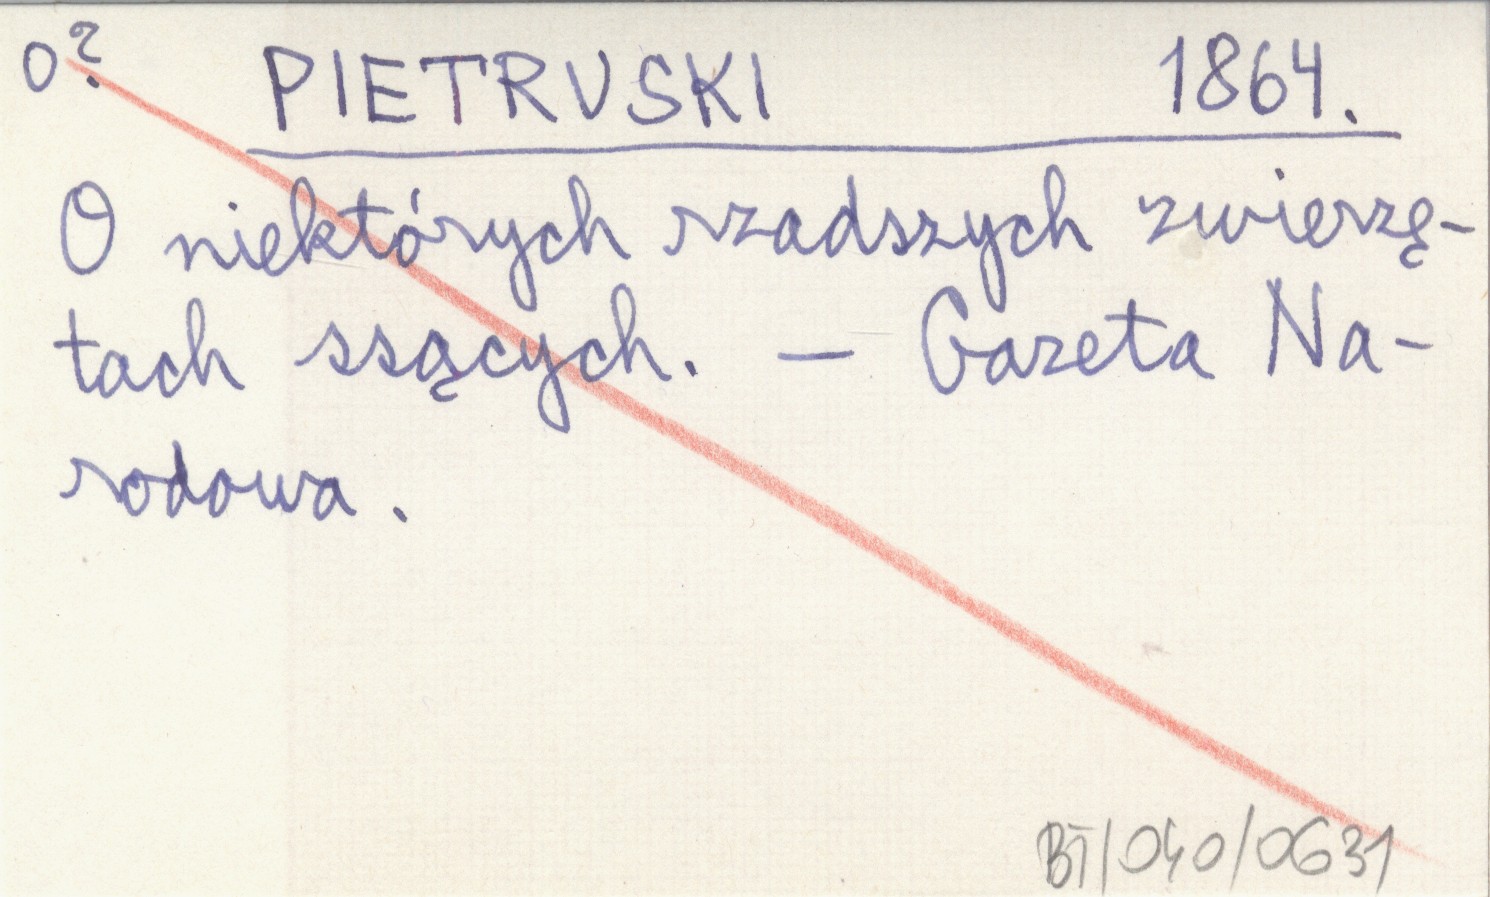 O? PIETRUSKI 1864.
O niektórych rzadszych zwierzę-
tach ssących. — Gazeta Na-
rodowa.
BT/040/0631